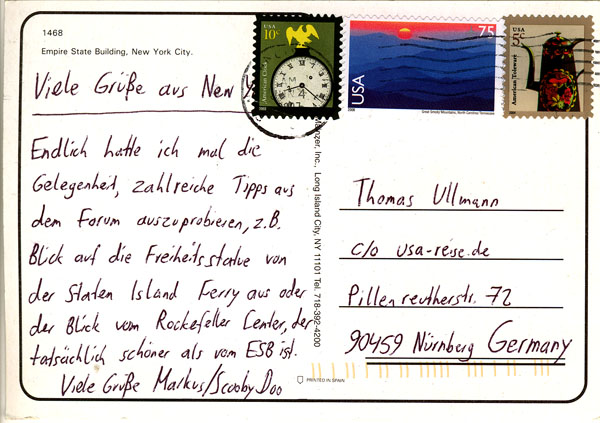 1468
Empire State Building, New York City.
Viele Grüße aus New Y
Endlich hatte ich mal die
Gelegenheit, zahlreiche Tipps aus
dem Forum auszuprobieren, z.B.
Blick auf die Freiheitsstatue von
der Staten Island Ferry aus oder
der Blick vom Rockefeller Center, der
tatsächlich schöner als vom ESB ist.
Viele Grüße Markus/Scooby Doo
USA
10c
American Clock
75
USA
Great Smoky Mountains, North Carolina/Tennessee
USA
5c
American Toleware
Manzer, Inc., Long Island City, NY 11101 Tel. 718-392-4200
Thomas Ullmann
c/o usa-reise.de
Pillenreutherstr. 72
90459 Nürnberg Germany
PRINTED IN SPAIN